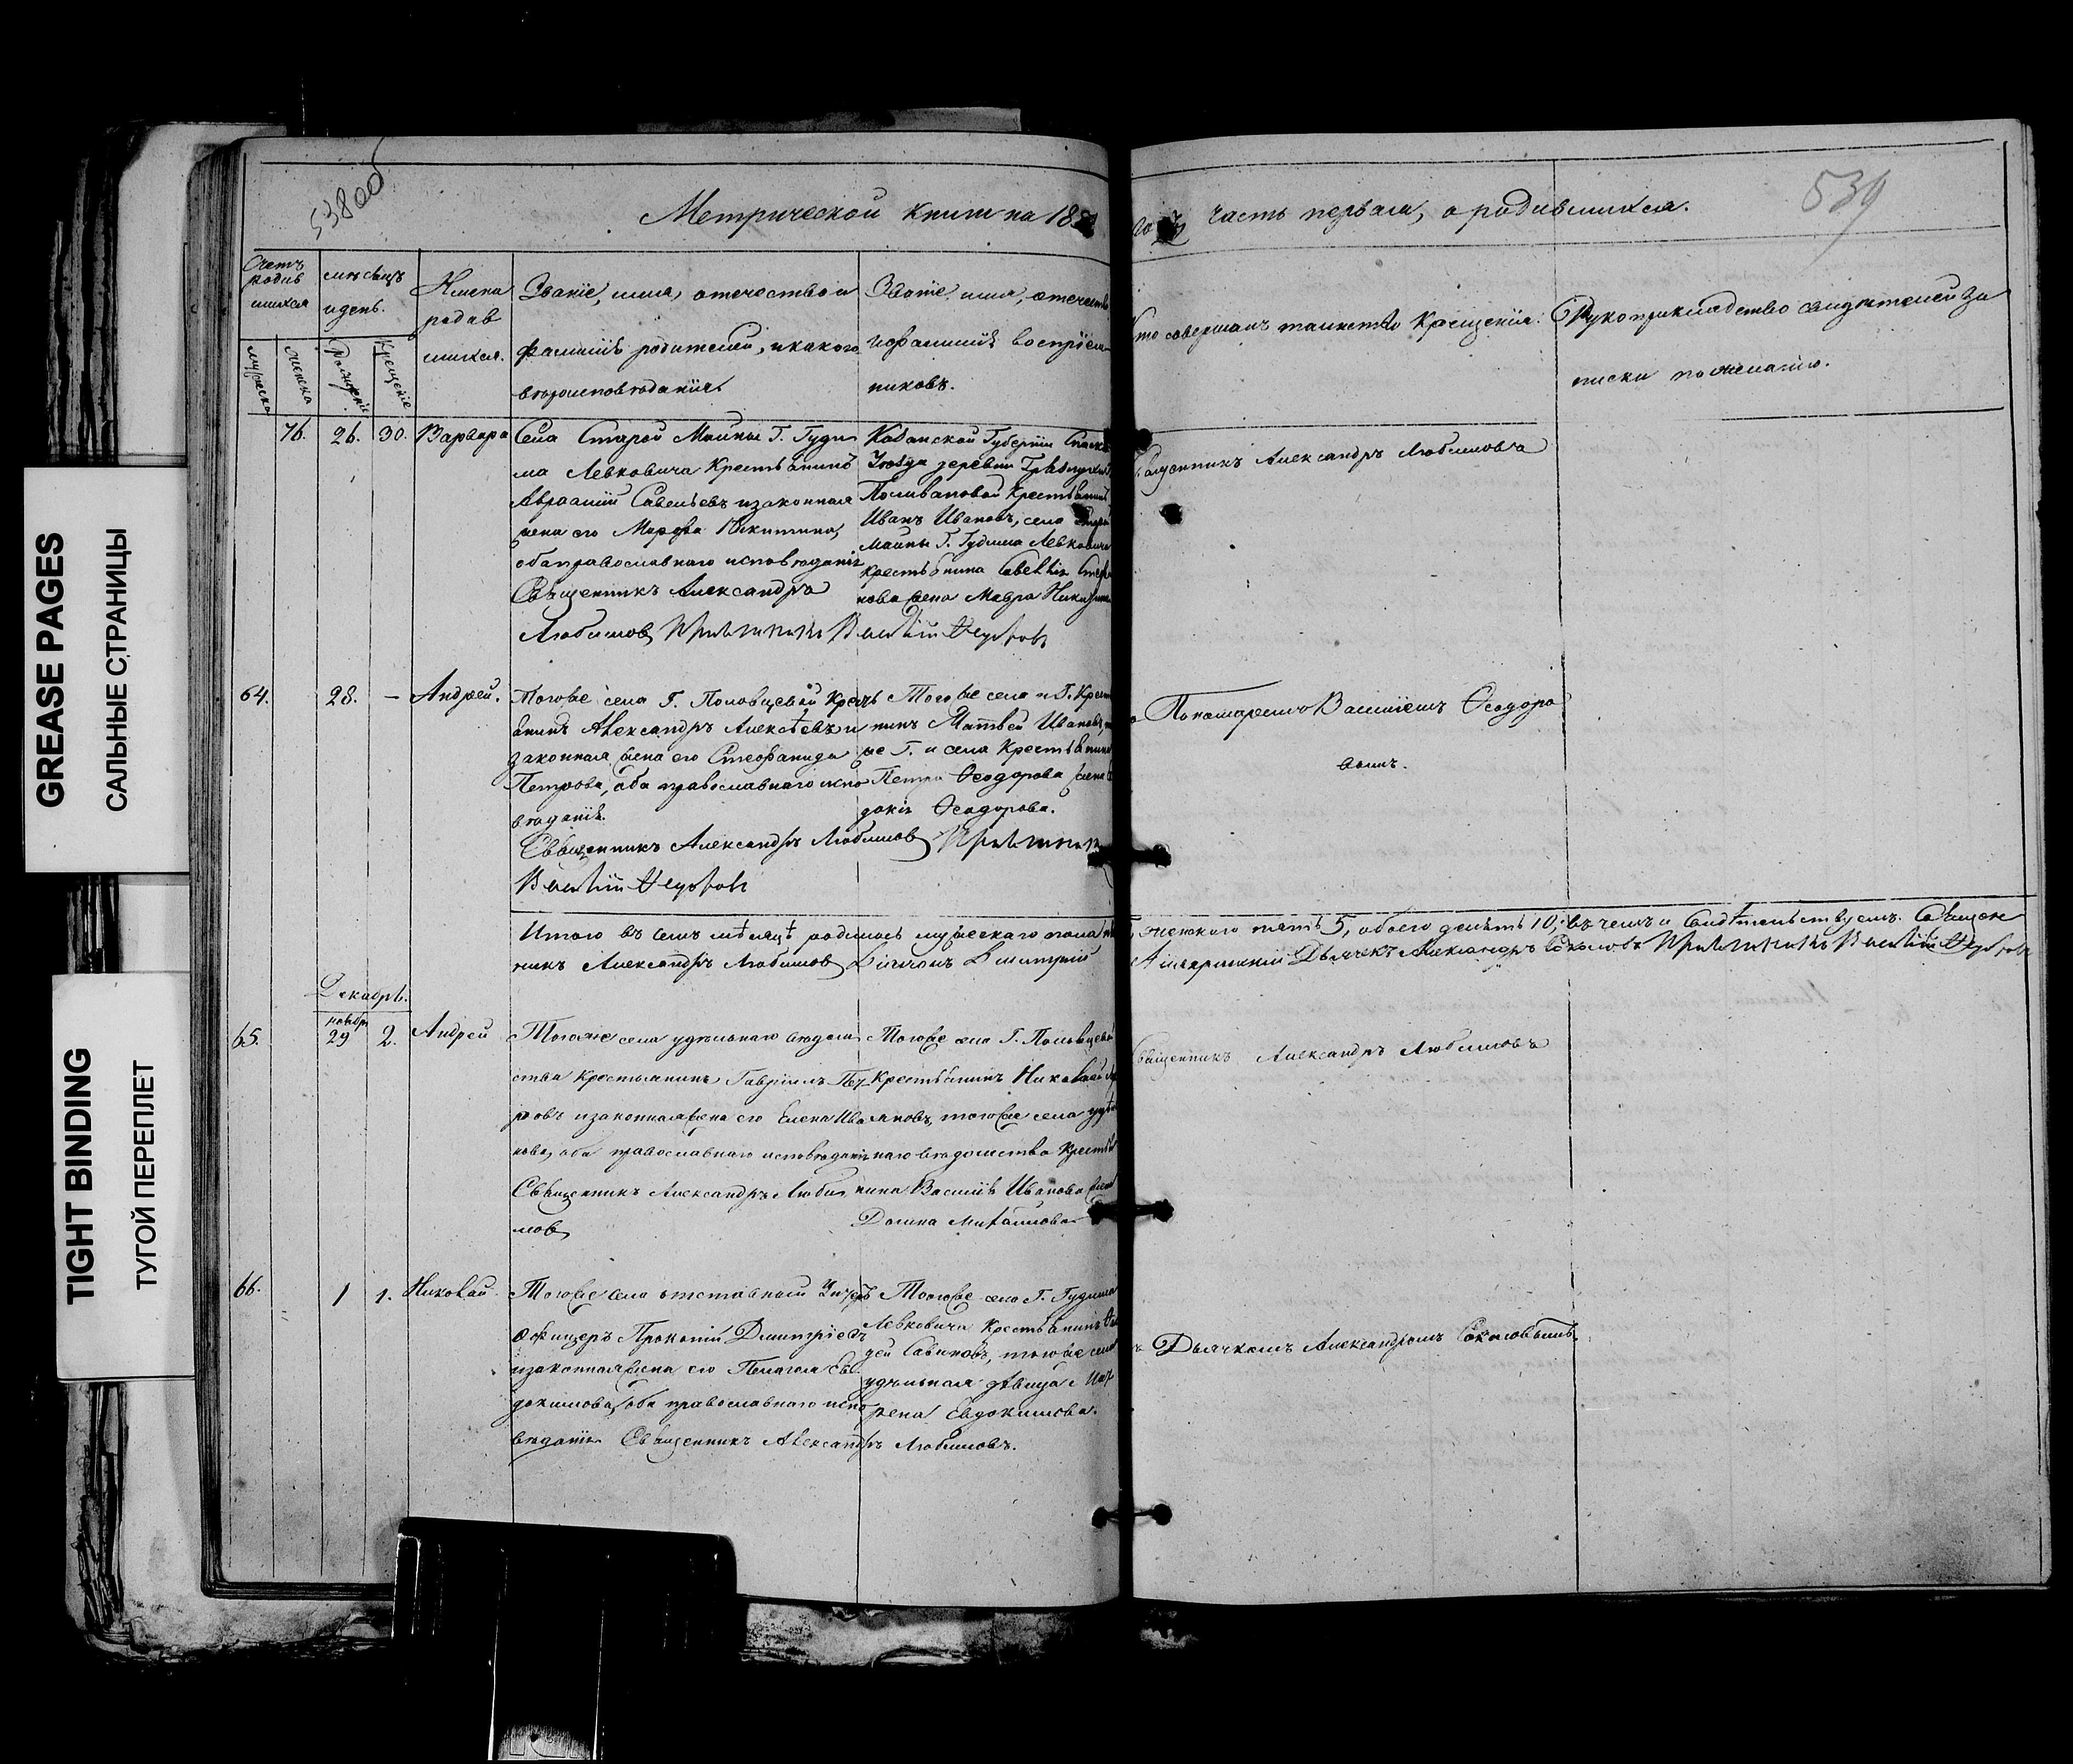 538об
539
Метрической книги на 185
года часть первая, о родившихся.
Счетъ родившихся
мужеска
женска
мѣсяцъ и день.
Рожденія
Крещеніе
Имена родившихся.
Званіе, имя, отечество и
фамилія родителей, и какого
вѣроисповѣданія.
Званіе, имя, отечество
и фамилія воспріем-
никовъ.
Кто совершалъ таинство Крещенія.
Рукоприкладство свидѣтелей за-
писки по желанію.
76. 26. 30. Варвара
Села Старой Майны Г. Гуди-
ма Левковича Крестьянинъ
Авраамій Савельевъ и законная
жена его Марфа Никитина,
оба православнаго исповѣданія
Священникъ Александръ
Любимовъ
Казанской Губерніи Спаска
Уѣзда деревни
Поливановой Крестьянинъ
Иванъ Ивановъ, села Старой
Майны Г. Гудима Левковича
крестьянина Савелія
нова жена Мавра
Священникъ Александръ Любимовъ
64. 28. — Андрей.
Тогоже села Г. Половцевой Кресть
янинъ Александръ Алексѣевъ и
законная жена его Стефанида
Петрова, оба православнаго испо
вѣданія.
Священникъ Александръ Любимовъ
Тогоже села и Г. Крестья
нинъ Матвей Ивановъ,
же Г. и села Крестьянина
Петра Ѳеодорова жена
докія Ѳеодорова.
Пономаремъ Василіемъ Ѳеодоро
вымъ.
Итого въ семъ мѣсяцѣ родилось мужескаго пола пять, женскаго пять 5, обоего десять 10; въ чемъ и свидѣтельствуемъ. Священ
никъ Александръ Любимовъ Діаконъ Димитрій Дьячекъ Александръ Соколовъ
Декабрь.
65. ноябр 29 2. Андрей
Тогоже села удѣльнаго вѣдом
ства Крестьянинъ Гавріилъ Пет
ровъ и законная жена его Елена Ива
нова, оба православнаго исповѣданія
Священникъ Александръ Люби
мовъ
Тогоже села Г. Половцевой
Крестьянинъ Николай
новъ, тогоже села удѣль
наго вѣдомства Крестья
нина Василія Иванова жена
Домна Михайлова
Священникъ Александръ Любимовъ
66. 1 1. Николай
Тогоже села отставной Унтеръ
Офицеръ Прокопій Димитріевъ
и законная жена его Пелагея Ев
докимова, оба православнаго испо
вѣданія. Священникъ Александръ Любимовъ.
Тогоже села Г. Гудима
Левковича Крестьянинъ
дей Савиновъ, тогоже села
удѣльная дѣвица
рена Евдокимова.
Дьячкомъ Александромъ Соколовымъ.
GREASE PAGES
САЛЬНЫЕ СТРАНИЦЫ
TIGHT BINDING
ТУГОЙ ПЕРЕПЛЕТ